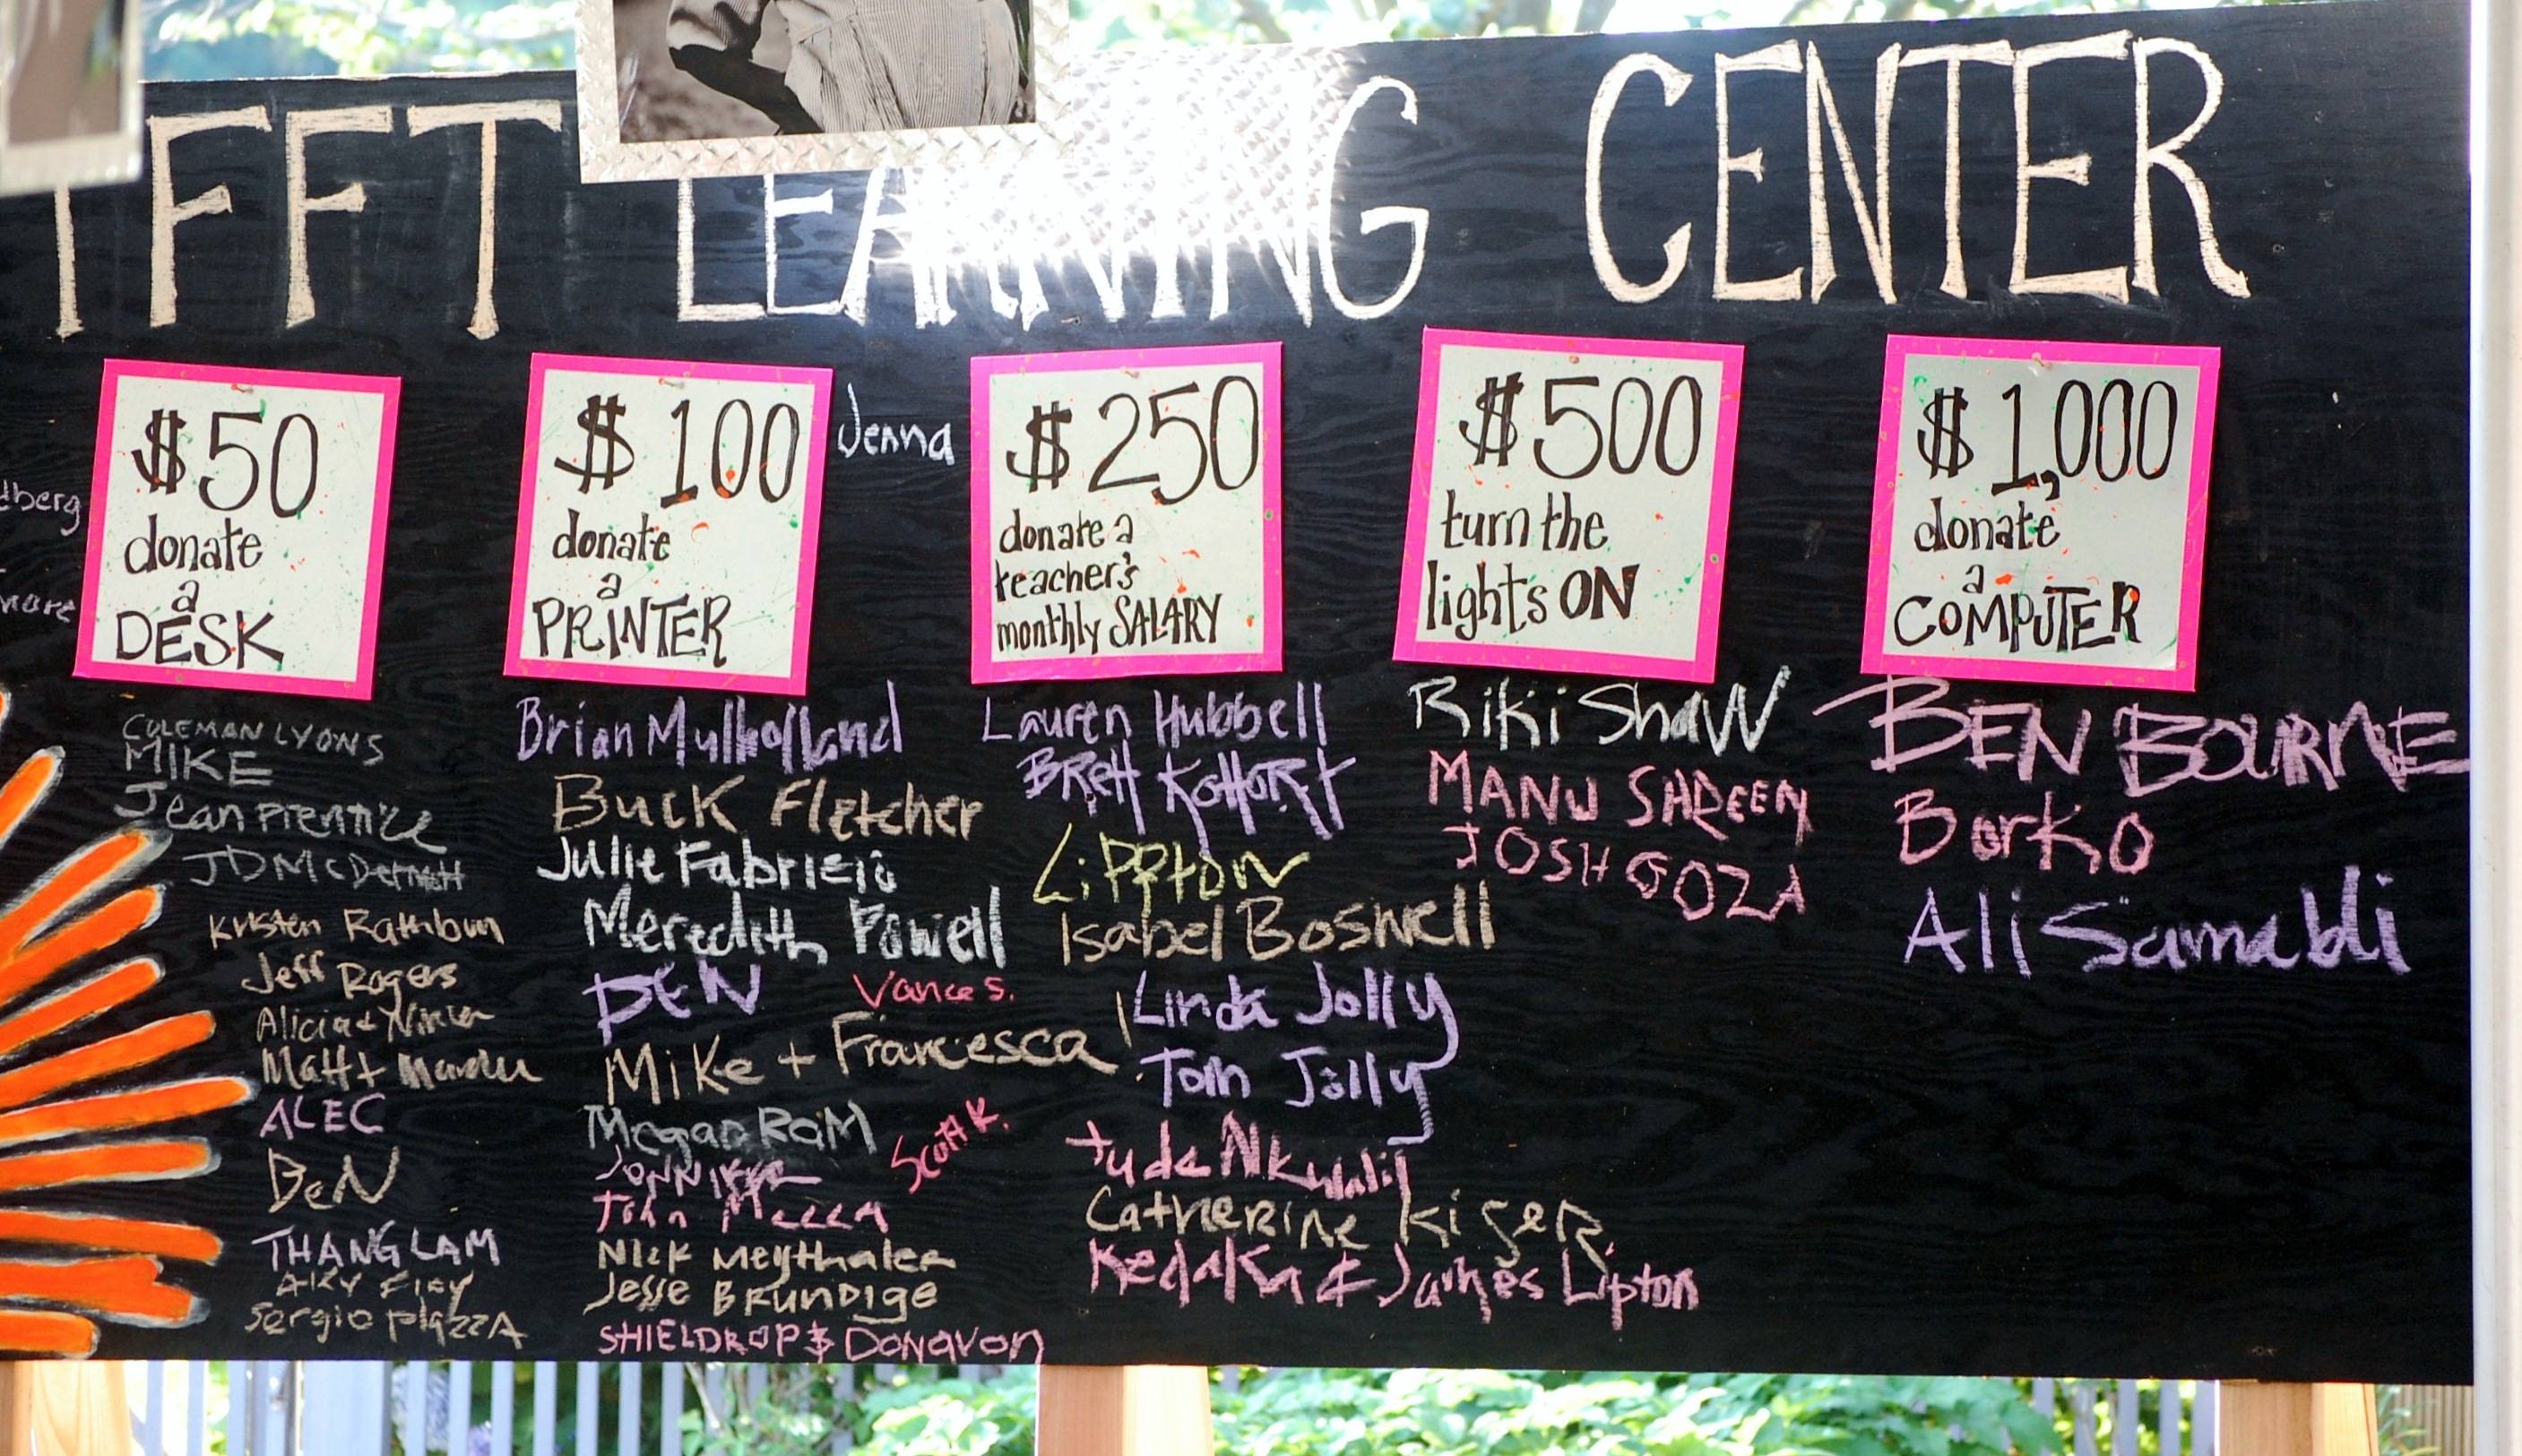 TFFT LEARNING CENTER
$50
donate
a
DESK
$100
donate
a
PRINTER
Jenna
$250
donate a
teacher's
monthly SALARY
$500
turn the
lights ON
$1,000
donate
a
COMPUTER
dberg
COLEMAN LYONS
MIKE
Jean Prentice
JD McDermott
Kristen Rathbun
Jeff Rogers
Alicia +
Matt +
ALEC
BeN
THANG LAM
Sergio PlazzA
Brian Mulholland
Buck Fletcher
Julie Fabrizio
Meredith Powell
BEN
Vance S.
Mike + Francesca
Megan RaM
Scott K.
John
Nick Meythaler
Jesse BRunDige
SHIELDROP $ Donavon
Lauren Hubbell
BRett KohoRst
LiPPtoN
Isabel Boswell
Linda Jolly
Tom Jolly
CatheRiNe KiseR
& James Lipton
Riki ShaW
MANU SHREEN
JOSH GOZA
BEN BOURNE
Borko
Ali Samabli